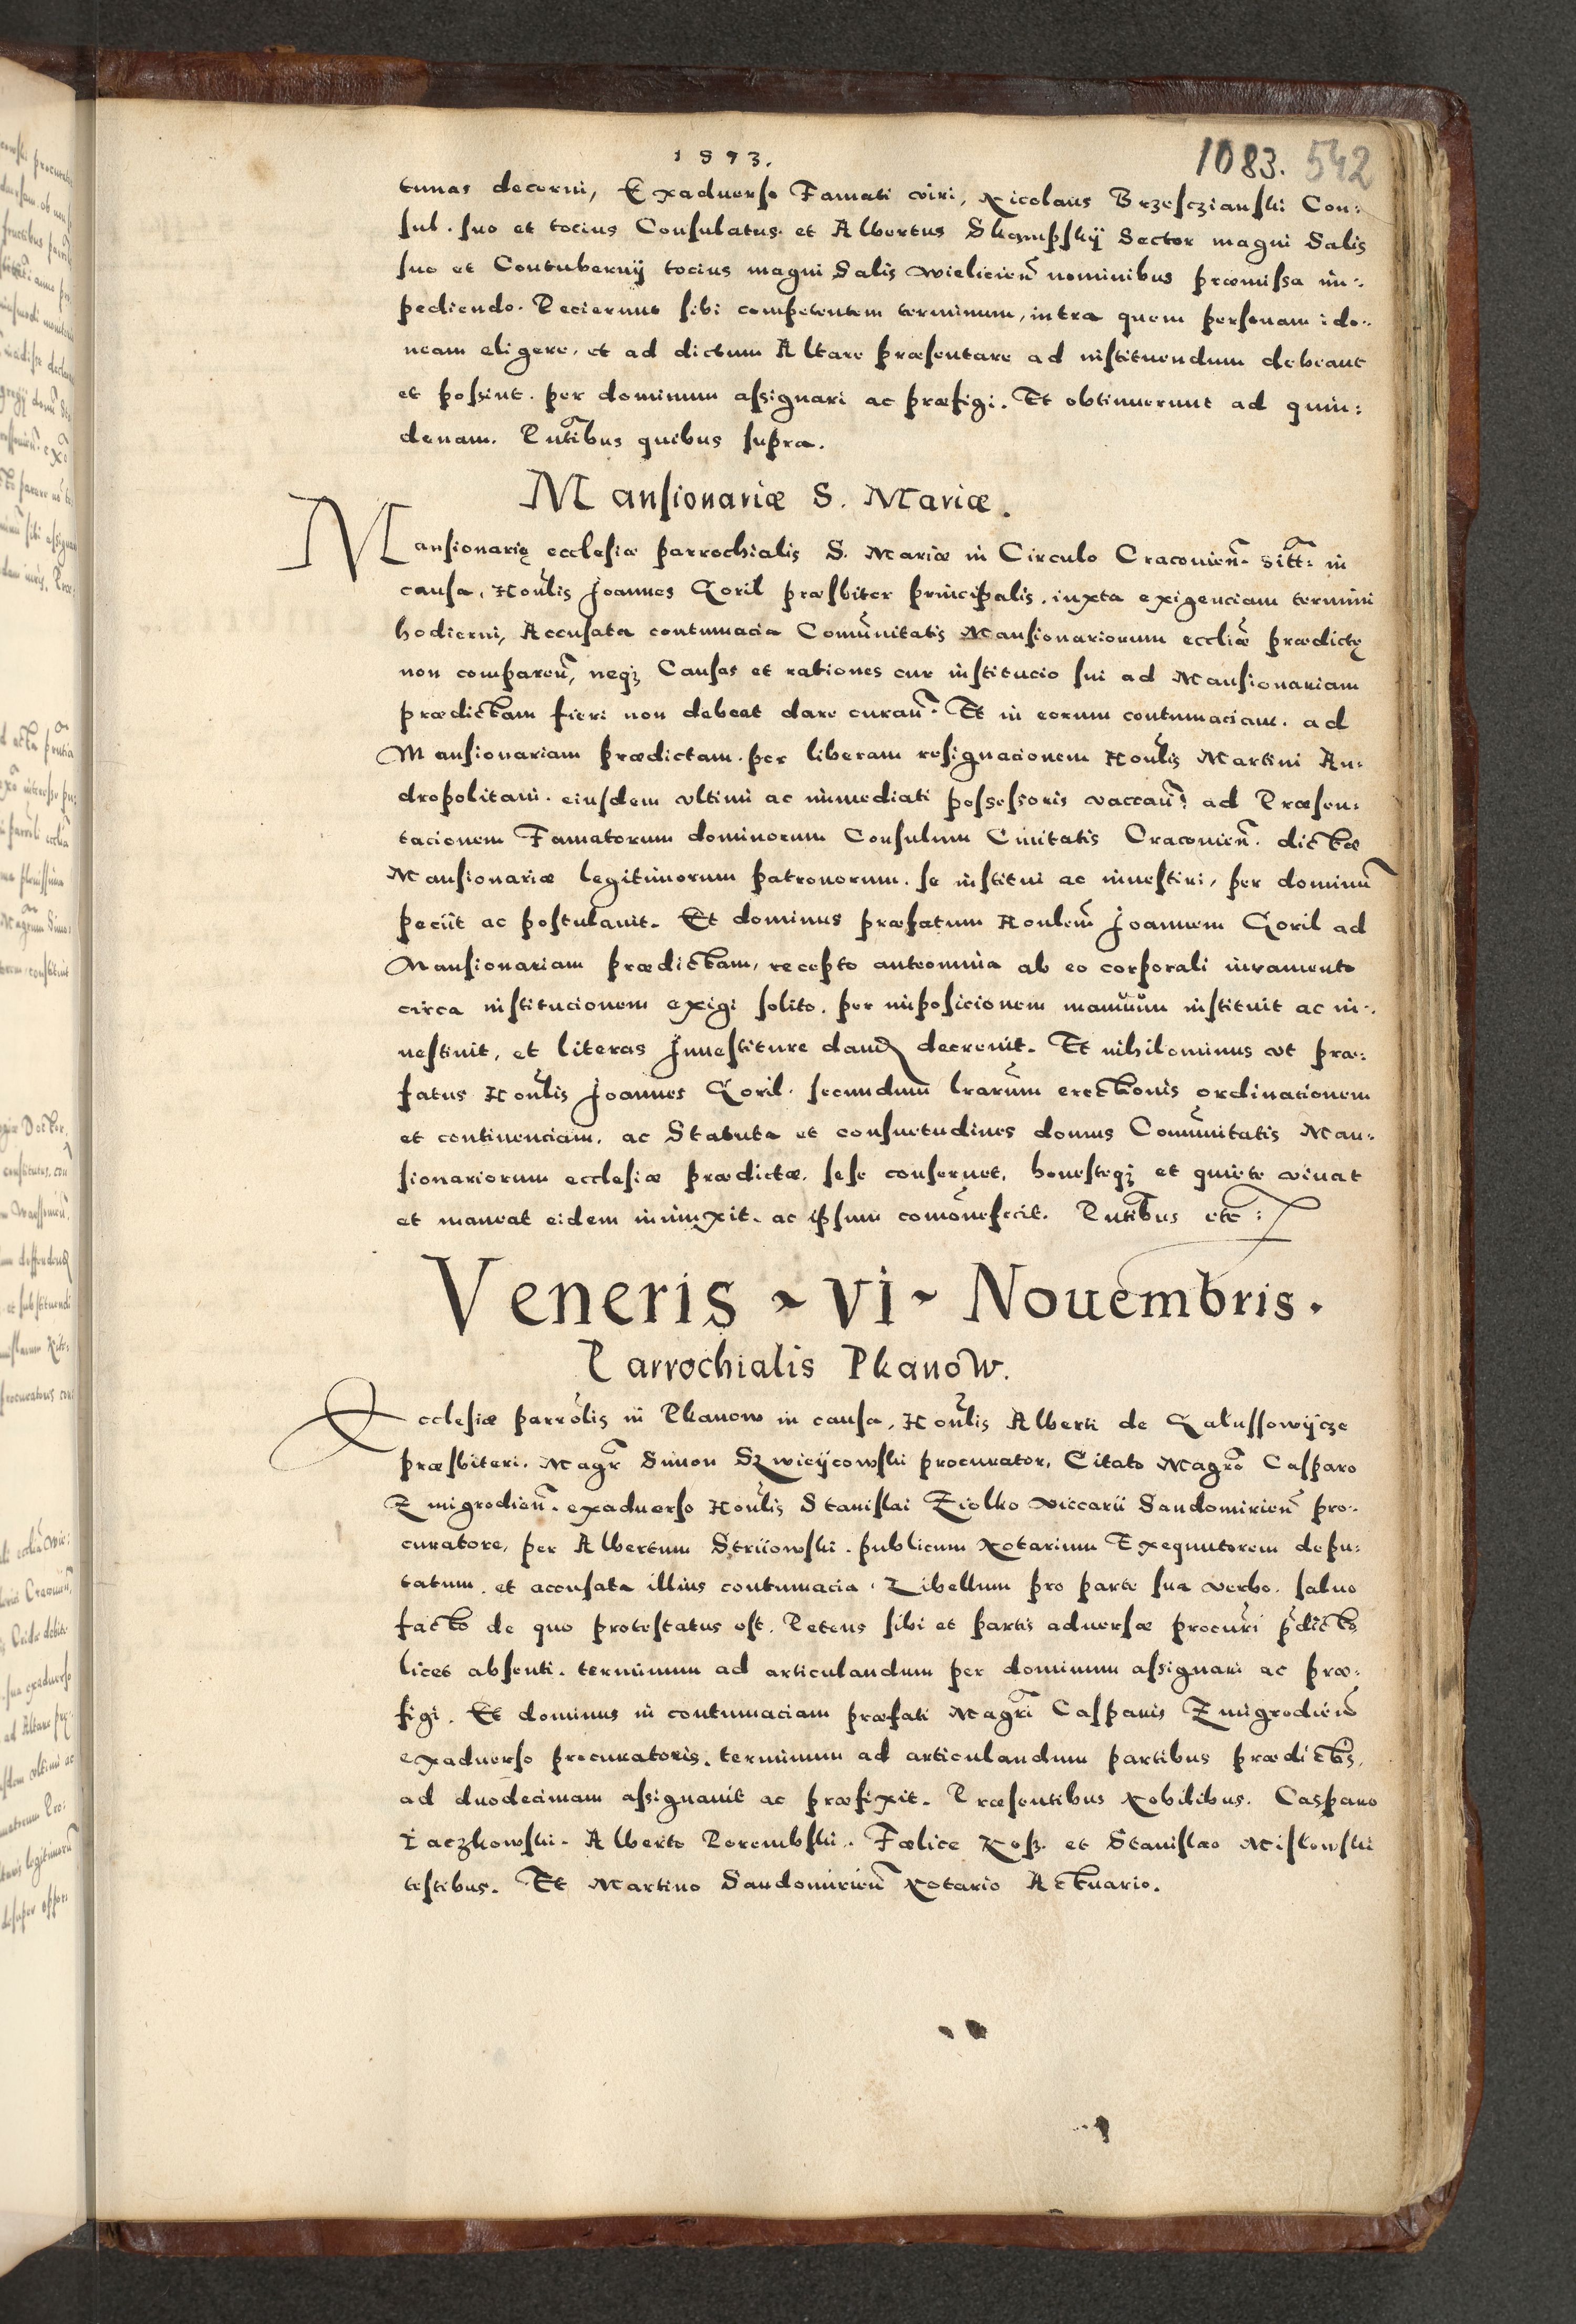 1593.
1083. 542
tunas decerni, Exaduerso Famati viri, Nicolaus Brzesczianski Con:
sul. suo et tocius Consulatus. et Albertus Skąmpskÿ Sector magni Salis
suo et Contubernÿ tocius magni Salis Wielicień nominibus præmissa im:
pediendo. Pecierunt sibi competentem terminum, intra quem personam ido:
neam eligere, et ad dictum Altare præsentare ad instituendum debeant
et possint. per dominum assignari ac præfigi. Et obtinuerunt ad quin:
denam. Pntibus quibus supra.
Mansionariæ S. Mariæ.
Mansionarię ecclesiæ parrochialis S. Mariæ in Circulo Cracouień. sitt: in
causa, Honlis Joannes Goril præsbiter principalis. iuxta exigenciam termini
hodierni, Accusata contumacia Comunitatis Mansionariorum eccliæ prædictę
non compareń, neqȝ Causas et rationes cur institucio sui ad Mansionariam
prædictam fieri non debeat dare curań. Et in eorum contumaciam. ad
Mansionariam prædictam. per liberam resignacionem Honlis Martini An:
dropolitani. eiusdem vltimi ac immediati possessoris vaccań: ad Præsen:
tacionem Famatorum dominorum Consulum Ciuitatis Cracouień. dictæ
Mansionariæ legitimorum patronorum. se institui ac inuestiri, per dominū
peciit ac postulauit. Et dominus præfatum Honlem Joannem Goril ad
Mansionariam prædictam, recepto anteomnia ab eo corporali iuramento
circa institucionem exigi solito. per imposicionem manuum instituit ac in:
uestiuit, et literas Inuestiture dand decreuit. Et nihilominus vt præ:
fatus Honlis Joannes Goril. secundum lrarum erectionis ordinationem
et continenciam, ac Statuta et consuetudines domus Comunitatis Man:
sionariorum ecclesiæ prædictæ. sese conseruet, honesteqȝ et quiete viuat
et maneat eidem iniunxit. ac ipsum comonefecit. Pntibus etc:
Veneris ~ vi ~ Nouembris.
Parrochialis Pkanow.
Ecclesiæ parrolis in Pkanow in causa, Honlis Alberti de Galussowÿcze
præsbiteri. Magr Simon Szwicÿcowski procurator, Citato Magro Casparo
Zmigrodień. exaduerso Honlis Stanislai Ziolko viccarii Sandomirień pro:
curatore, per Albertum Striiowski. publicum Notarium Exequutorem depu:
tatum. et accusata illius contumacia. Libellum pro parte sua verbo. saluo
facto de quo protestatus est. Petens sibi et partis aduersæ procuri pdicto,
licet absenti. terminum ad articulandum per dominum assignari ac præ:
figi. Et dominus in contumaciam præfati Magri Casparis Zmigrodień
exaduerso procuratoris. terminum ad articulandum partibus prædictis,
ad duodecimam assignauit ac præfixit. Præsentibus Nobilibus. Casparo
Iaczkowski. Alberto Porembski. Fælice Kosz. et Stanislao Mislowski
testibus. Et Martino Sandomirień Notario Actuario.